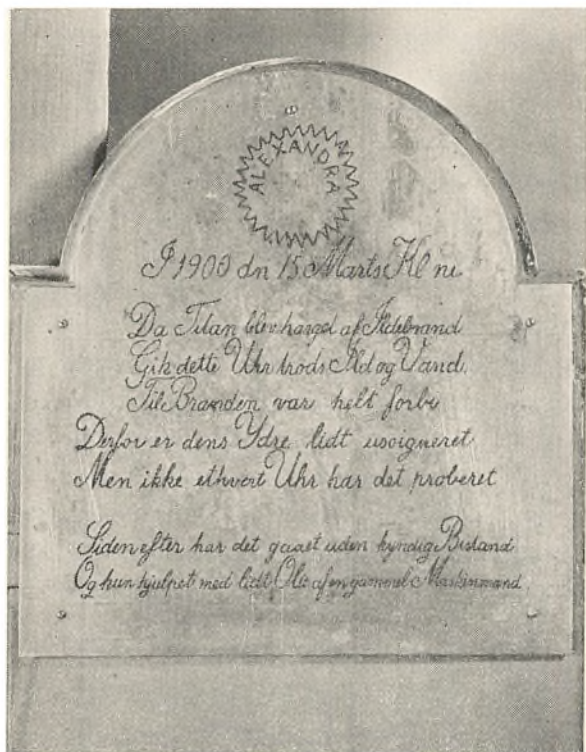 ALEXANDRA
I 1900 dn 15 Marts Kl ni
Da Titan blev hærget af Ildebrand
Gik dette Uhr trods Ild og Vand.
Til Branden var helt forbi
Derfor er dens Ydre lidt usoigneret
Men ikke ethvert Uhr har det proberet
Siden efter har det gaaet uden kyndig Bistand
Og kun hjulpet med lidt Olie af en gammel Maskinmand.